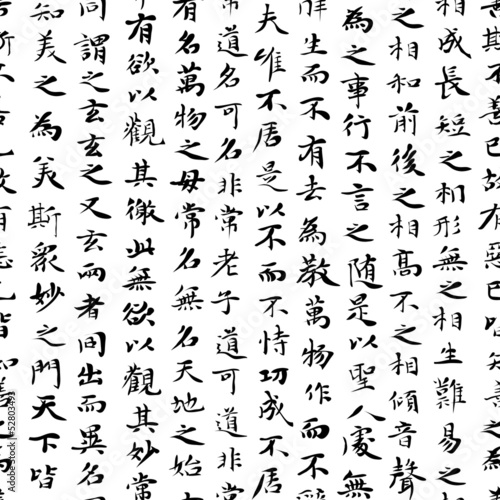 斯不善已故有惡已皆知善之為
相成長短之相形無之相生難易之
之相和前後之相高不之相傾音聲
為之事行不言之随是以聖人處無
生而不有去為教萬物作而不
夫唯不居是以不而不恃功成不居
常道名可名非常老子道可道非常
有名萬物之母常名無名天地之始
有欲以觀其徼此無欲以觀其妙常
同謂之玄玄之又玄兩者同出而異名
知美之為美斯眾妙之門天下皆